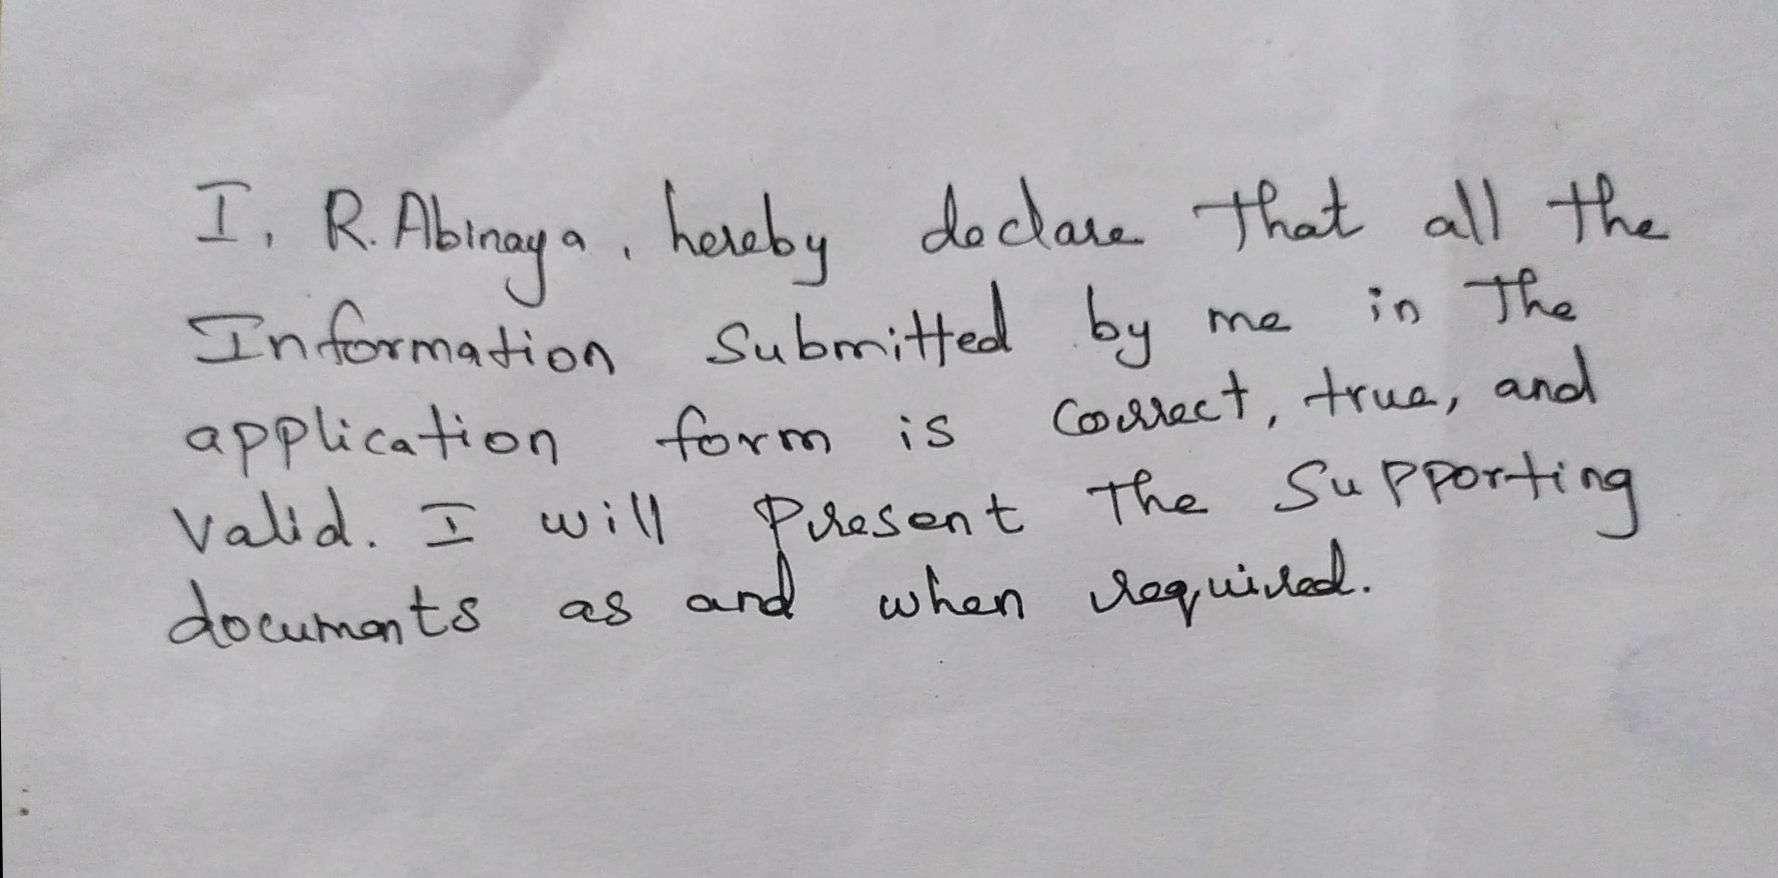 I, R. Abinaya, hereby declare that all the
Information Submitted by me in the
application form is correct, true, and
valid. I will present the Supporting
documents as and when required.